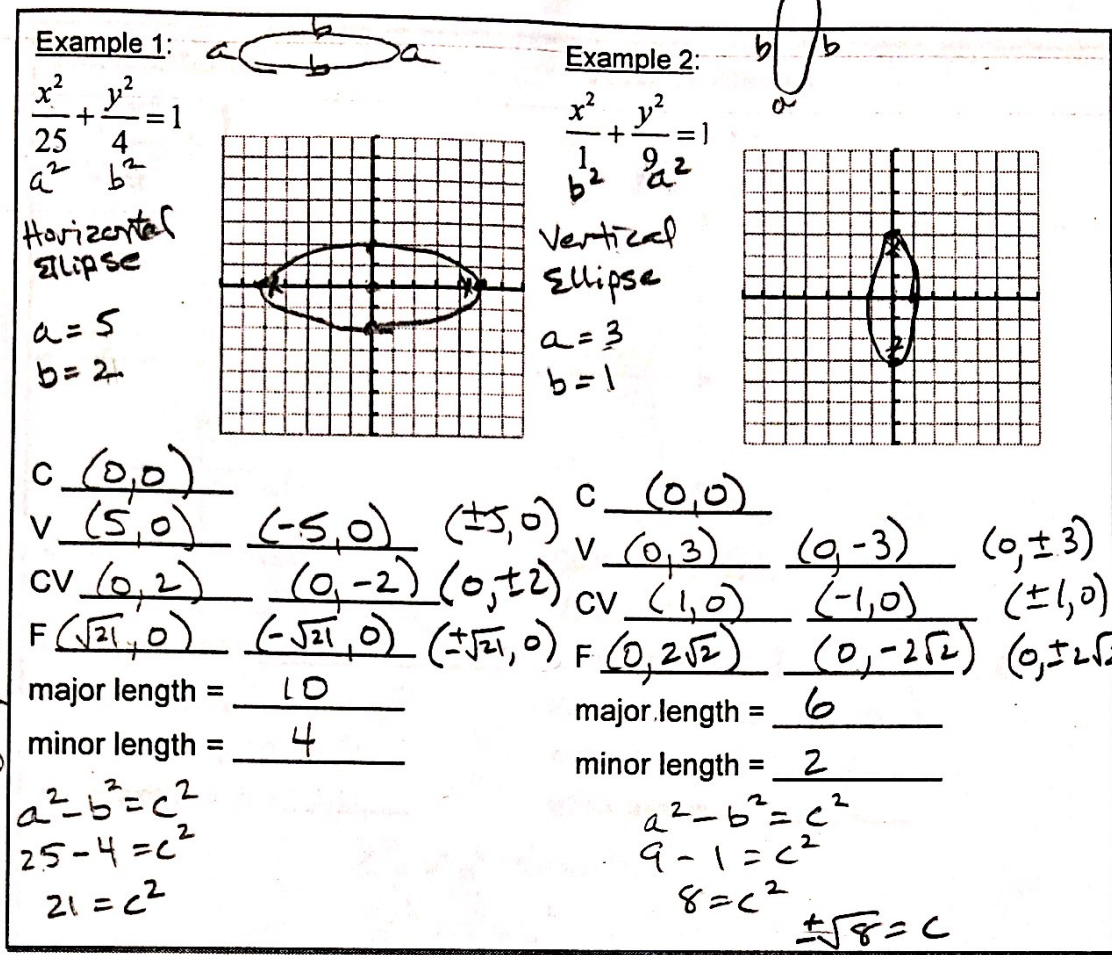 Example 1:
a b b a
x²/25 + y²/4 = 1
a² b²
Horizontal
Ellipse
a = 5
b = 2
C (0,0)
V (5,0) (-5,0) (±5,0)
CV (0,2) (0,-2) (0,±2)
F (√21,0) (-√21,0) (±√21,0)
major length = 10
minor length = 4
a² - b² = c²
25 - 4 = c²
21 = c²
Example 2:
b b
a
x²/1 + y²/9 = 1
b² a²
Vertical
Ellipse
a = 3
b = 1
C (0,0)
V (0,3) (0,-3) (0,±3)
CV (1,0) (-1,0) (±1,0)
F (0,2√2) (0,-2√2) (0,±2√2
major length = 6
minor length = 2
a² - b² = c²
9 - 1 = c²
8 = c²
±√8 = c